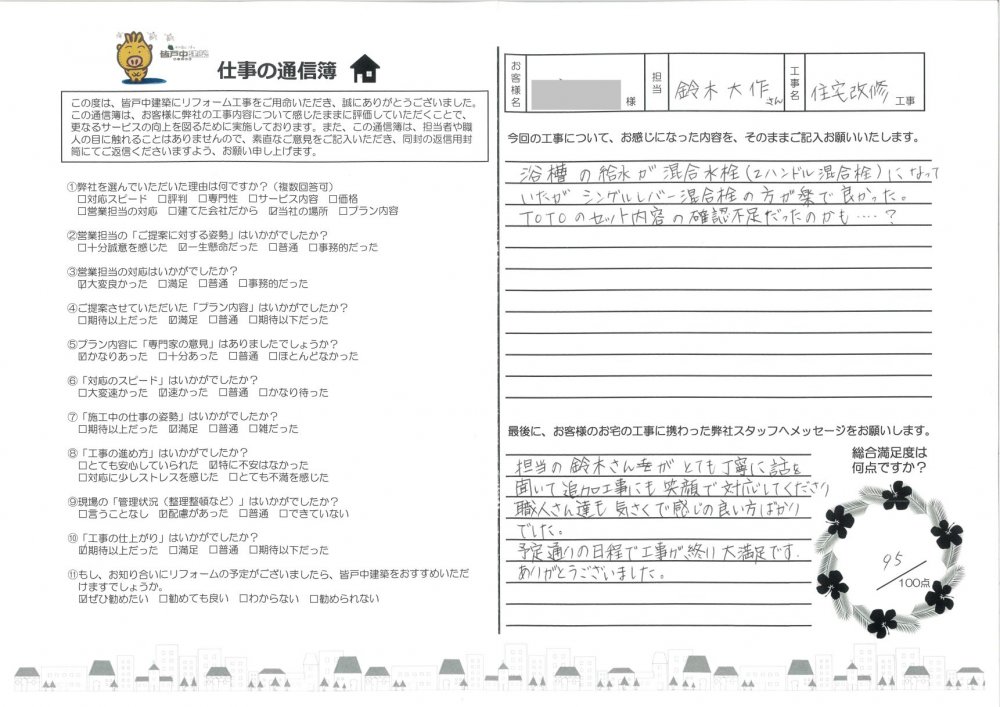 皆戸中建築
仕事の通信簿
この度は、皆戸中建築にリフォーム工事をご用命いただき、誠にありがとうございました。
この通信簿は、お客様に弊社の工事内容について感じたままに評価していただくことで、
更なるサービスの向上を図るために実施しております。また、この通信簿は、担当者や職
人の目に触れることはありませんので、素直なご意見をご記入いただき、同封の返信用封
筒にてご返信くださいますよう、お願い申し上げます。
①弊社を選んでいただいた理由は何ですか？（複数回答可）
□対応スピード □評判 □専門性 □サービス内容 □価格
□営業担当の対応 □建てた会社だから ☑当社の場所 □プラン内容
②営業担当の「ご提案に対する姿勢」はいかがでしたか？
□十分誠意を感じた ☑一生懸命だった □普通 □事務的だった
③営業担当の対応はいかがでしたか？
☑大変良かった □満足 □普通 □事務的だった
④ご提案させていただいた「プラン内容」はいかがでしたか？
□期待以上だった ☑満足 □普通 □期待以下だった
⑤プラン内容に「専門家の意見」はありましたでしょうか？
☑かなりあった □十分あった □普通 □ほとんどなかった
⑥「対応のスピード」はいかがでしたか？
□大変速かった ☑速かった □普通 □かなり待った
⑦「施工中の仕事の姿勢」はいかがでしたか？
□期待以上だった ☑満足 □普通 □雑だった
⑧「工事の進め方」はいかがでしたか？
□とても安心していられた ☑特に不安はなかった
□対応に少しストレスを感じた □とても不満を感じた
⑨現場の「管理状況（整理整頓など）」はいかがでしたか？
□言うことなし ☑配慮があった □普通 □できていない
⑩「工事の仕上がり」はいかがでしたか？
☑期待以上だった □満足 □普通 □期待以下だった
⑪もし、お知り合いにリフォームの予定がございましたら、皆戸中建築をおすすめいただ
けますでしょうか。
☑ぜひ勧めたい □勧めても良い □わからない □勧められない
お客様名 様 担当 鈴木大作さん 工事名 住宅改修工事
今回の工事について、お感じになった内容を、そのままご記入お願いいたします。
浴槽の給水が混合水栓(2ハンドル混合栓)になって
いたがシングルレバー混合栓の方が楽で良かった。
TOTOのセット内容の確認不足だったのかも‥‥？
最後に、お客様のお宅の工事に携わった弊社スタッフへメッセージをお願いします。
担当の鈴木さんがとても丁寧に話を
聞いて追加工事にも笑顔で対応してくださり
職人さん達も気さくで感じの良い方ばかり
でした。
予定通りの日程で工事が終り大満足です.
ありがとうございました。
総合満足度は
何点ですか？
95
/100点